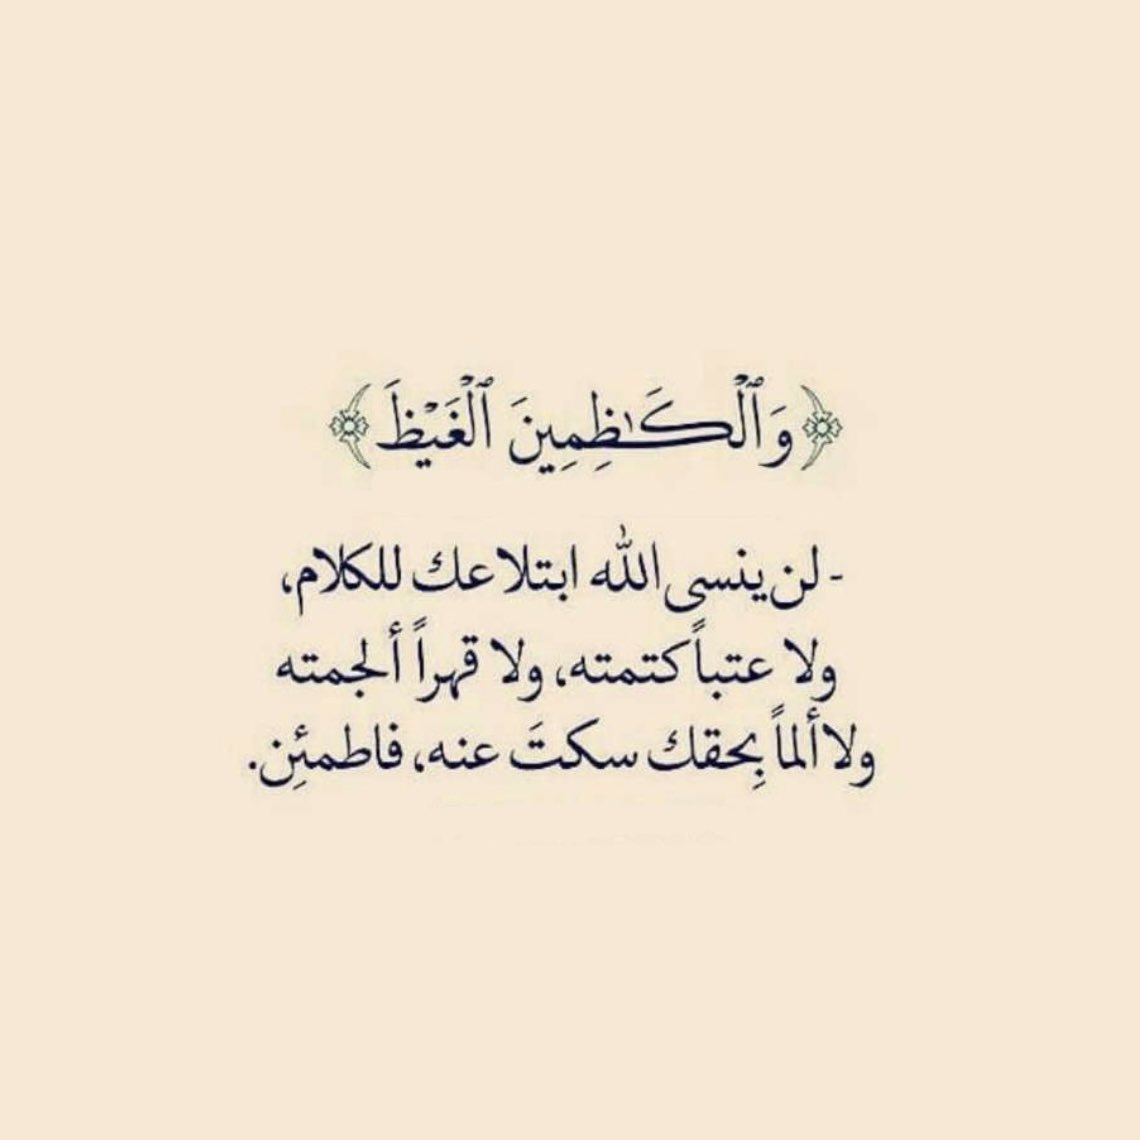 ﴿وَٱلْكَـٰظِمِينَ ٱلْغَيْظَ﴾
- لن ينسى الله ابتلاعك للكلام،
ولا عتباً كتمته، ولا قهراً ألجمته
ولا ألماً بِحقك سكتَ عنه، فاطمئِن.